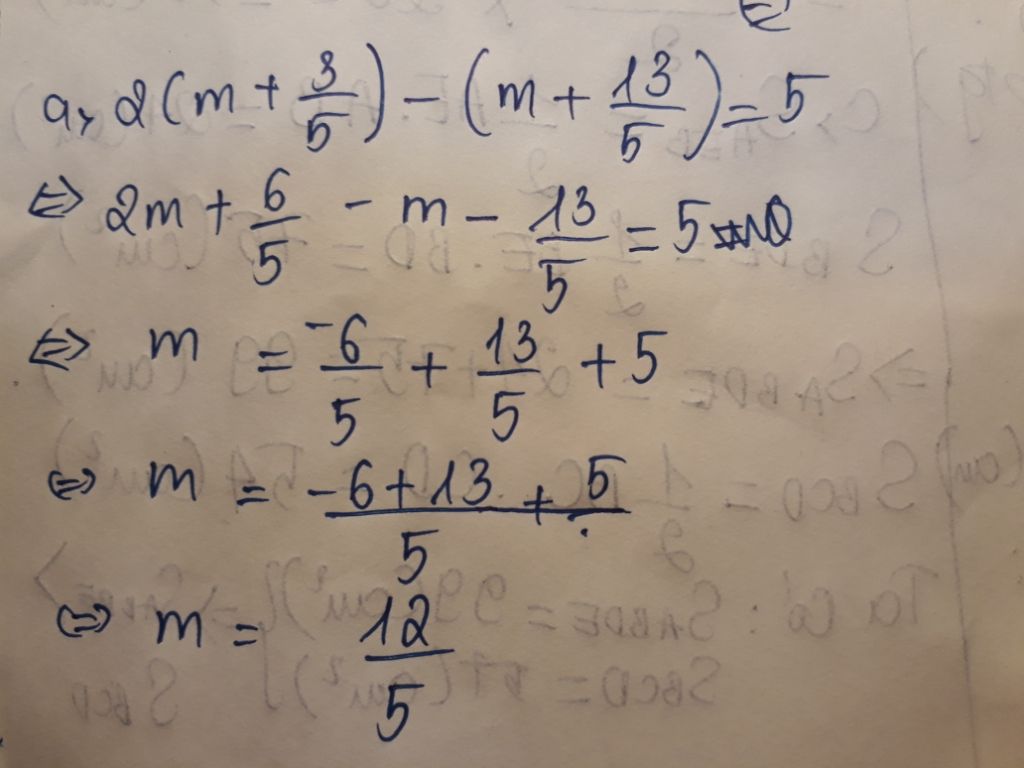 a, 2(m + 3/5) - (m + 13/5) = 5
⇔ 2m + 6/5 - m - 13/5 = 5
⇔ m = -6/5 + 13/5 + 5
⇔ m = (-6 + 13 + 5)/5
⇔ m = 12/5